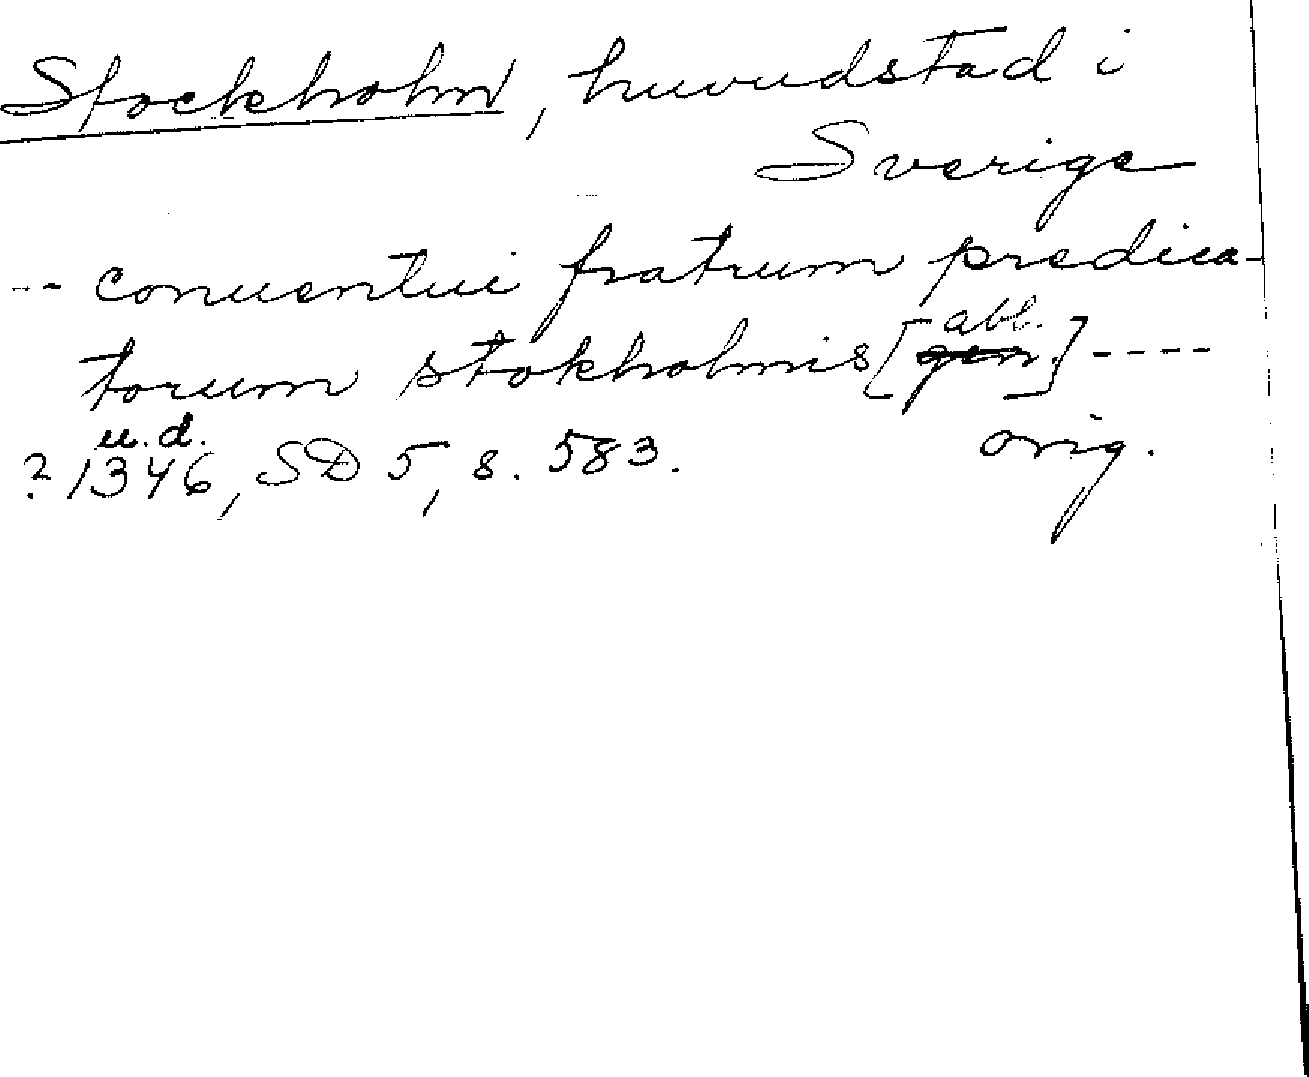 Stockholm, huvudstad i
Sverige
-- conuentui fratrum predica-
torum stokholmis [abl.] ----
u.d.
? 1346, SD 5, s. 583. orig.